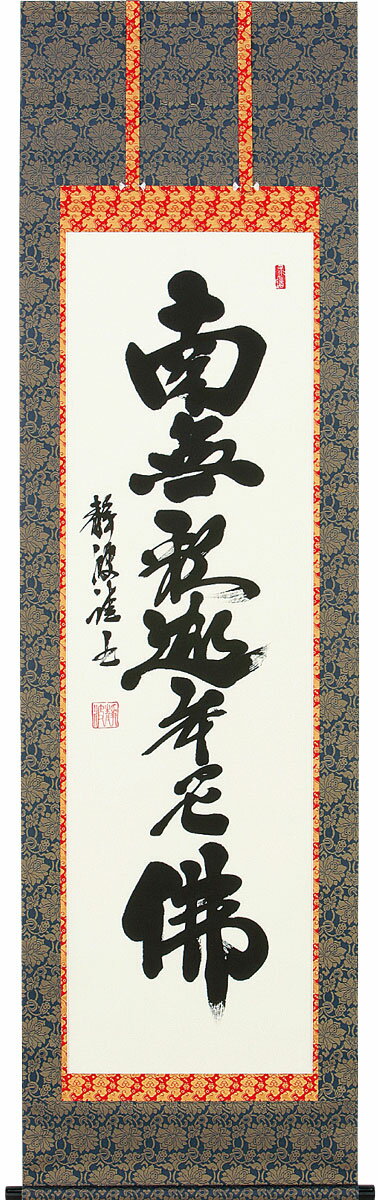 南無釈迦牟尼佛
静波謹書